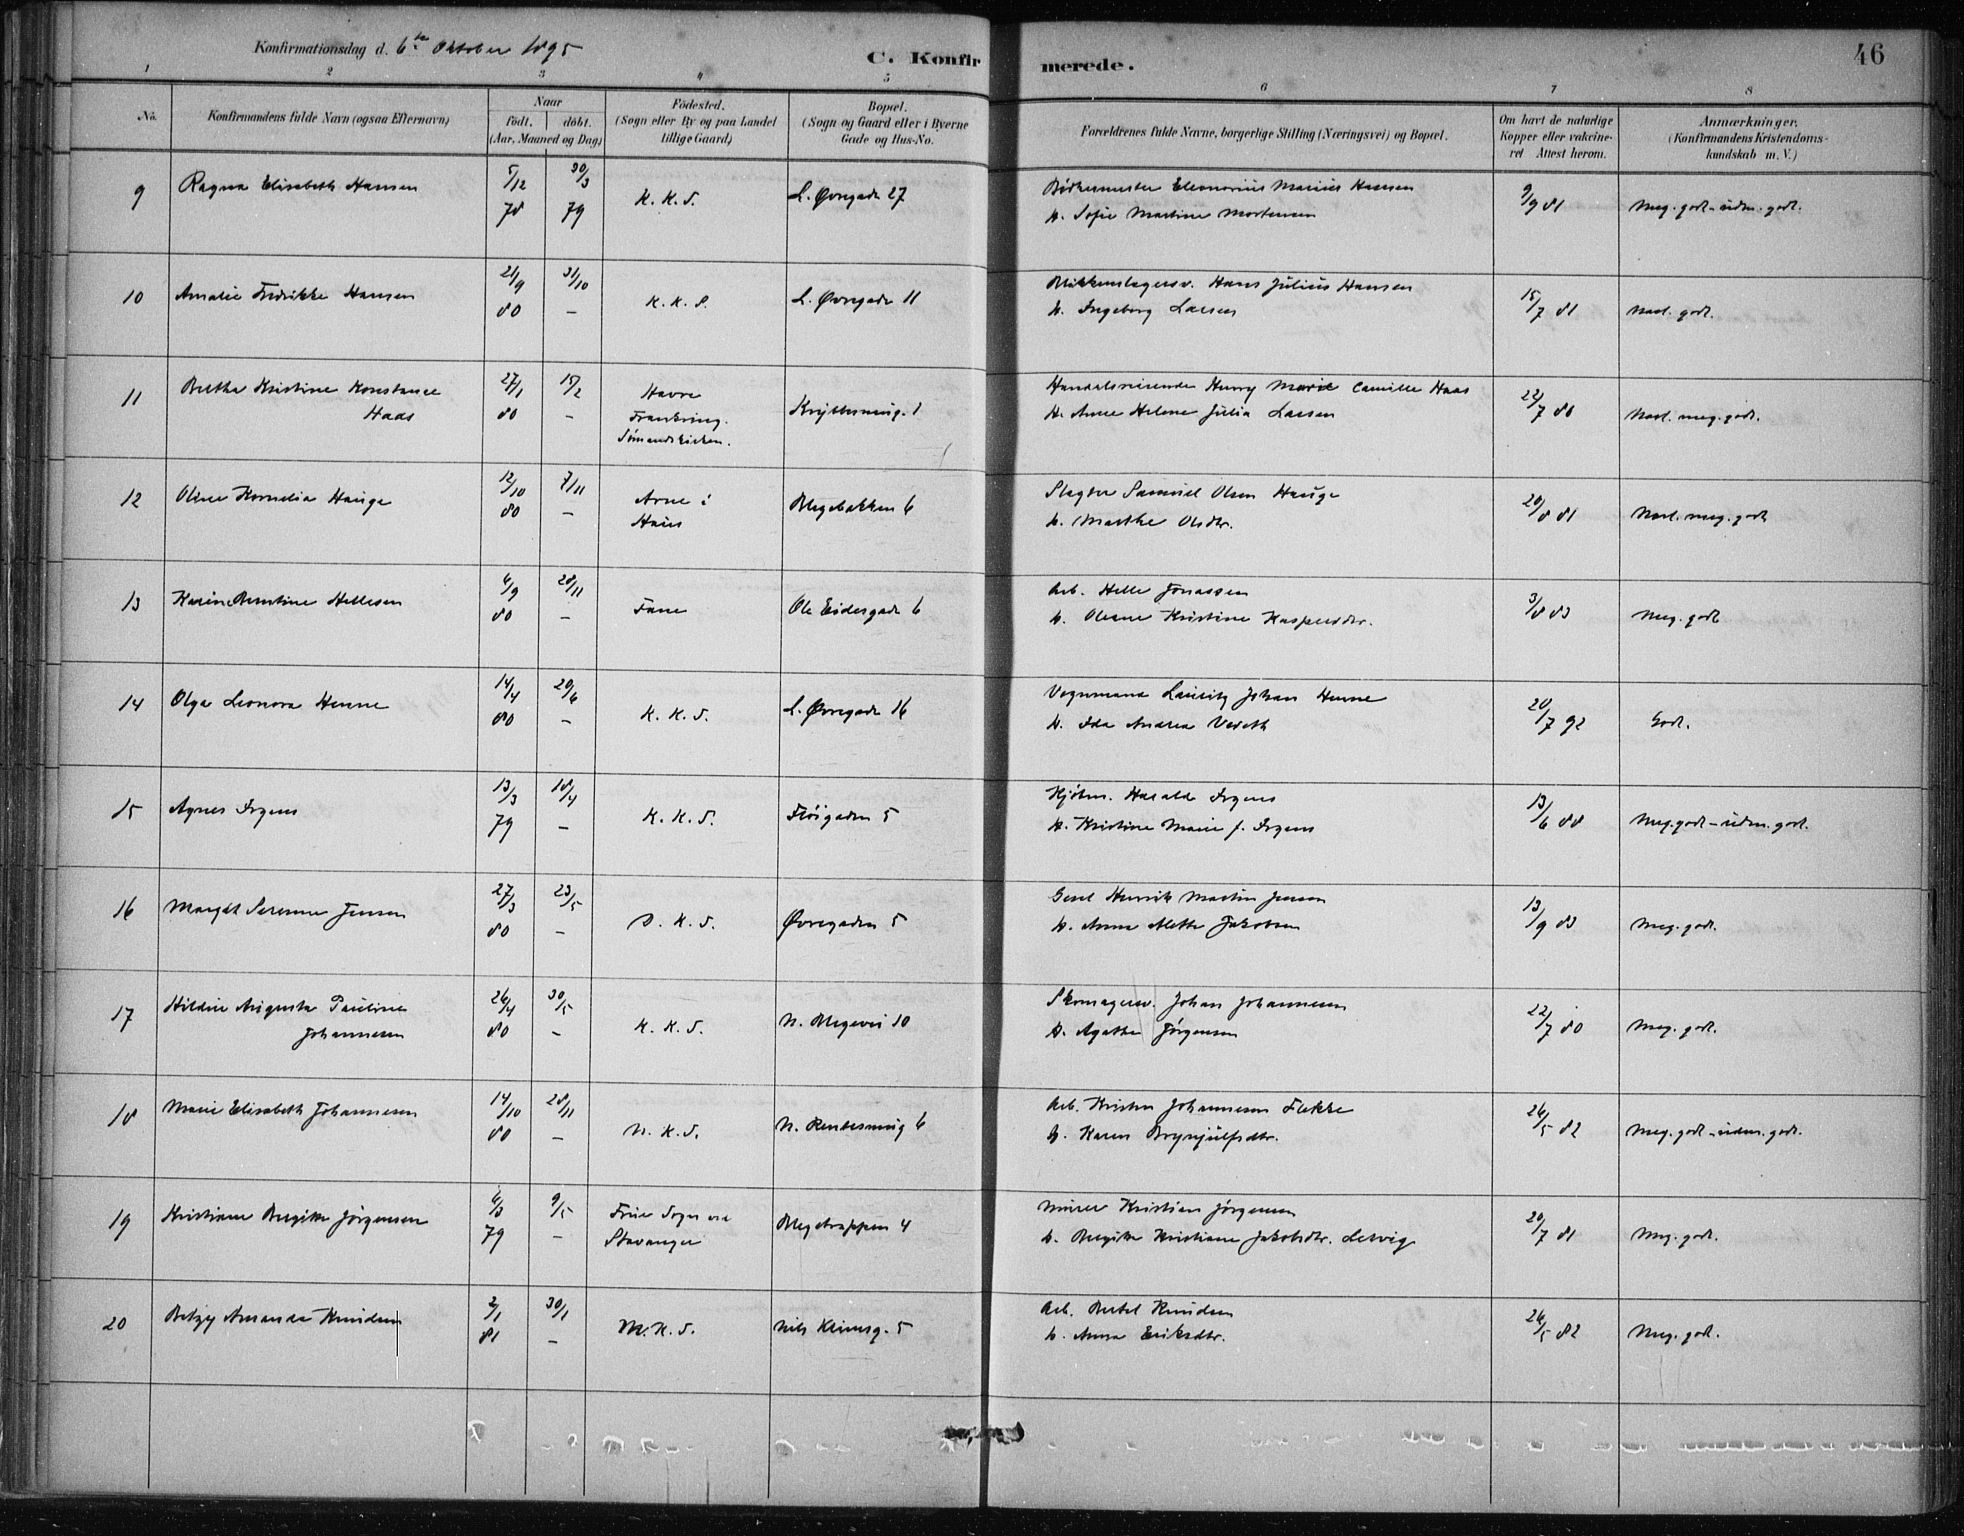 Konfirmationsdag d. 6te Oktober 1895
C. Konfirmerede.
46
1 2 3 4 5 6 7 8
No.
Konfirmandens fulde Navn (ogsaa Efternavn)
Naar
födt. döbt.
(Aar, Maaned og Dag)
Födested.
(Sogn eller By og paa Landet
tillige Gaard)
Bopæl.
(Sogn og Gaard eller i Byerne
Gade og Hus-No.
Forældrenes fulde Navne, borgerlige Stilling (Næringsvei) og Bopæl.
Om havt de naturlige
Kopper eller vakcine-
ret Attest herom.
Anmærkninger.
(Konfirmandens Kristendoms-
kundskab m. V.)
9 Ragna Elisabeth Hansen 5/12 78 30/3 79 K. K. S. L. Øvregade 27
Bødkermester Eleonorius Marius Hansen
H. Sofie Martine Mortensen
9/9 81 Meg. godt - udm. godt.
10 Amalie Fredrikke Hansen 21/9 80 31/10 — K. K. S. L. Øvregade 11
Blikkenslagersv. Hans Julius Hansen
H. Ingeborg Larsen
15/7 81 Navl. godt.
11 Bertha Kristine Konstance
Haas
27/1 80 15/2 —
Havre
Frankrig.
Sömandskirken.
Krytersmug. 1
Handelsreisende Henry Marie Camille Haas
H. Anne Helene Julia Larsen
22/7 80 Navl. meg. godt.
12 Oline Kornelia Hauge 12/10 80 7/11 —
Arne i
Haus
Blegebakken 6
Slagter Samuel Olsen Hauge
H. Marthe Olsdtr.
20/8 81 Navl. meg. godt
13 Karine Berntine Hellesen 6/9 80 28/11 — Fane Ole Eidesgade 6
Arb. Helle Jonassen
H. Oleane Kristine Kaspersdtr.
3/8 83 Meg. godt
14 Olga Leonora Henne 14/4 80 20/6 — K. K. S. L. Øvregade 16
Vognmand Lauritz Johan Henne
H. Ida Andrea Vedeth
20/7 92 Godt.
15 Agnes Irgens 13/3 79 18/4 — K. K. S. Flöigaden 5
Kjöbm. Harald Irgens
H. Kristine Marie f. Irgens
13/6 88 Meg. godt - udm. godt.
16 Margit Serenne Jensen 27/3 80 23/5 — D. K. S. Øvregaden 5
Gesel Henrik Martin Jensen
H. Anna Alette Jakobsen
13/9 83 Meg. godt.
17 Hildur Augusta Pauline
Johannesen
26/4 80 30/5 — K. K. S. N. Blegevei 10
Skomagersv. Johan Johannesen
H. Agathe Jörgensen
22/7 80 Meg. godt.
18 Marie Elisabeth Johannesen 14/10 80 28/11 — N. K. S. N. Rentesmug 6
Arb. Kristen Johannesen Flekke
H. Karen Brynjulfsdtr.
26/5 82 Meg. godt - udm. godt.
19 Kristiane Bergitte Jörgensen 6/3 79 9/5 —
Frue Sogn ved
Stavanger
Blegetrappen 4
Murer Kristian Jörgensen
H. Bergitte Kristiane Jakobsdtr. Lervig
20/7 81 Meg. godt.
20 Betzy Amanda Knudsen 2/1 81 30/1 — M. K. S. Nils Klimsg. 5
Arb. Bertel Knudsen
H. Anna Eriksdtr.
26/5 82 Meg. godt.